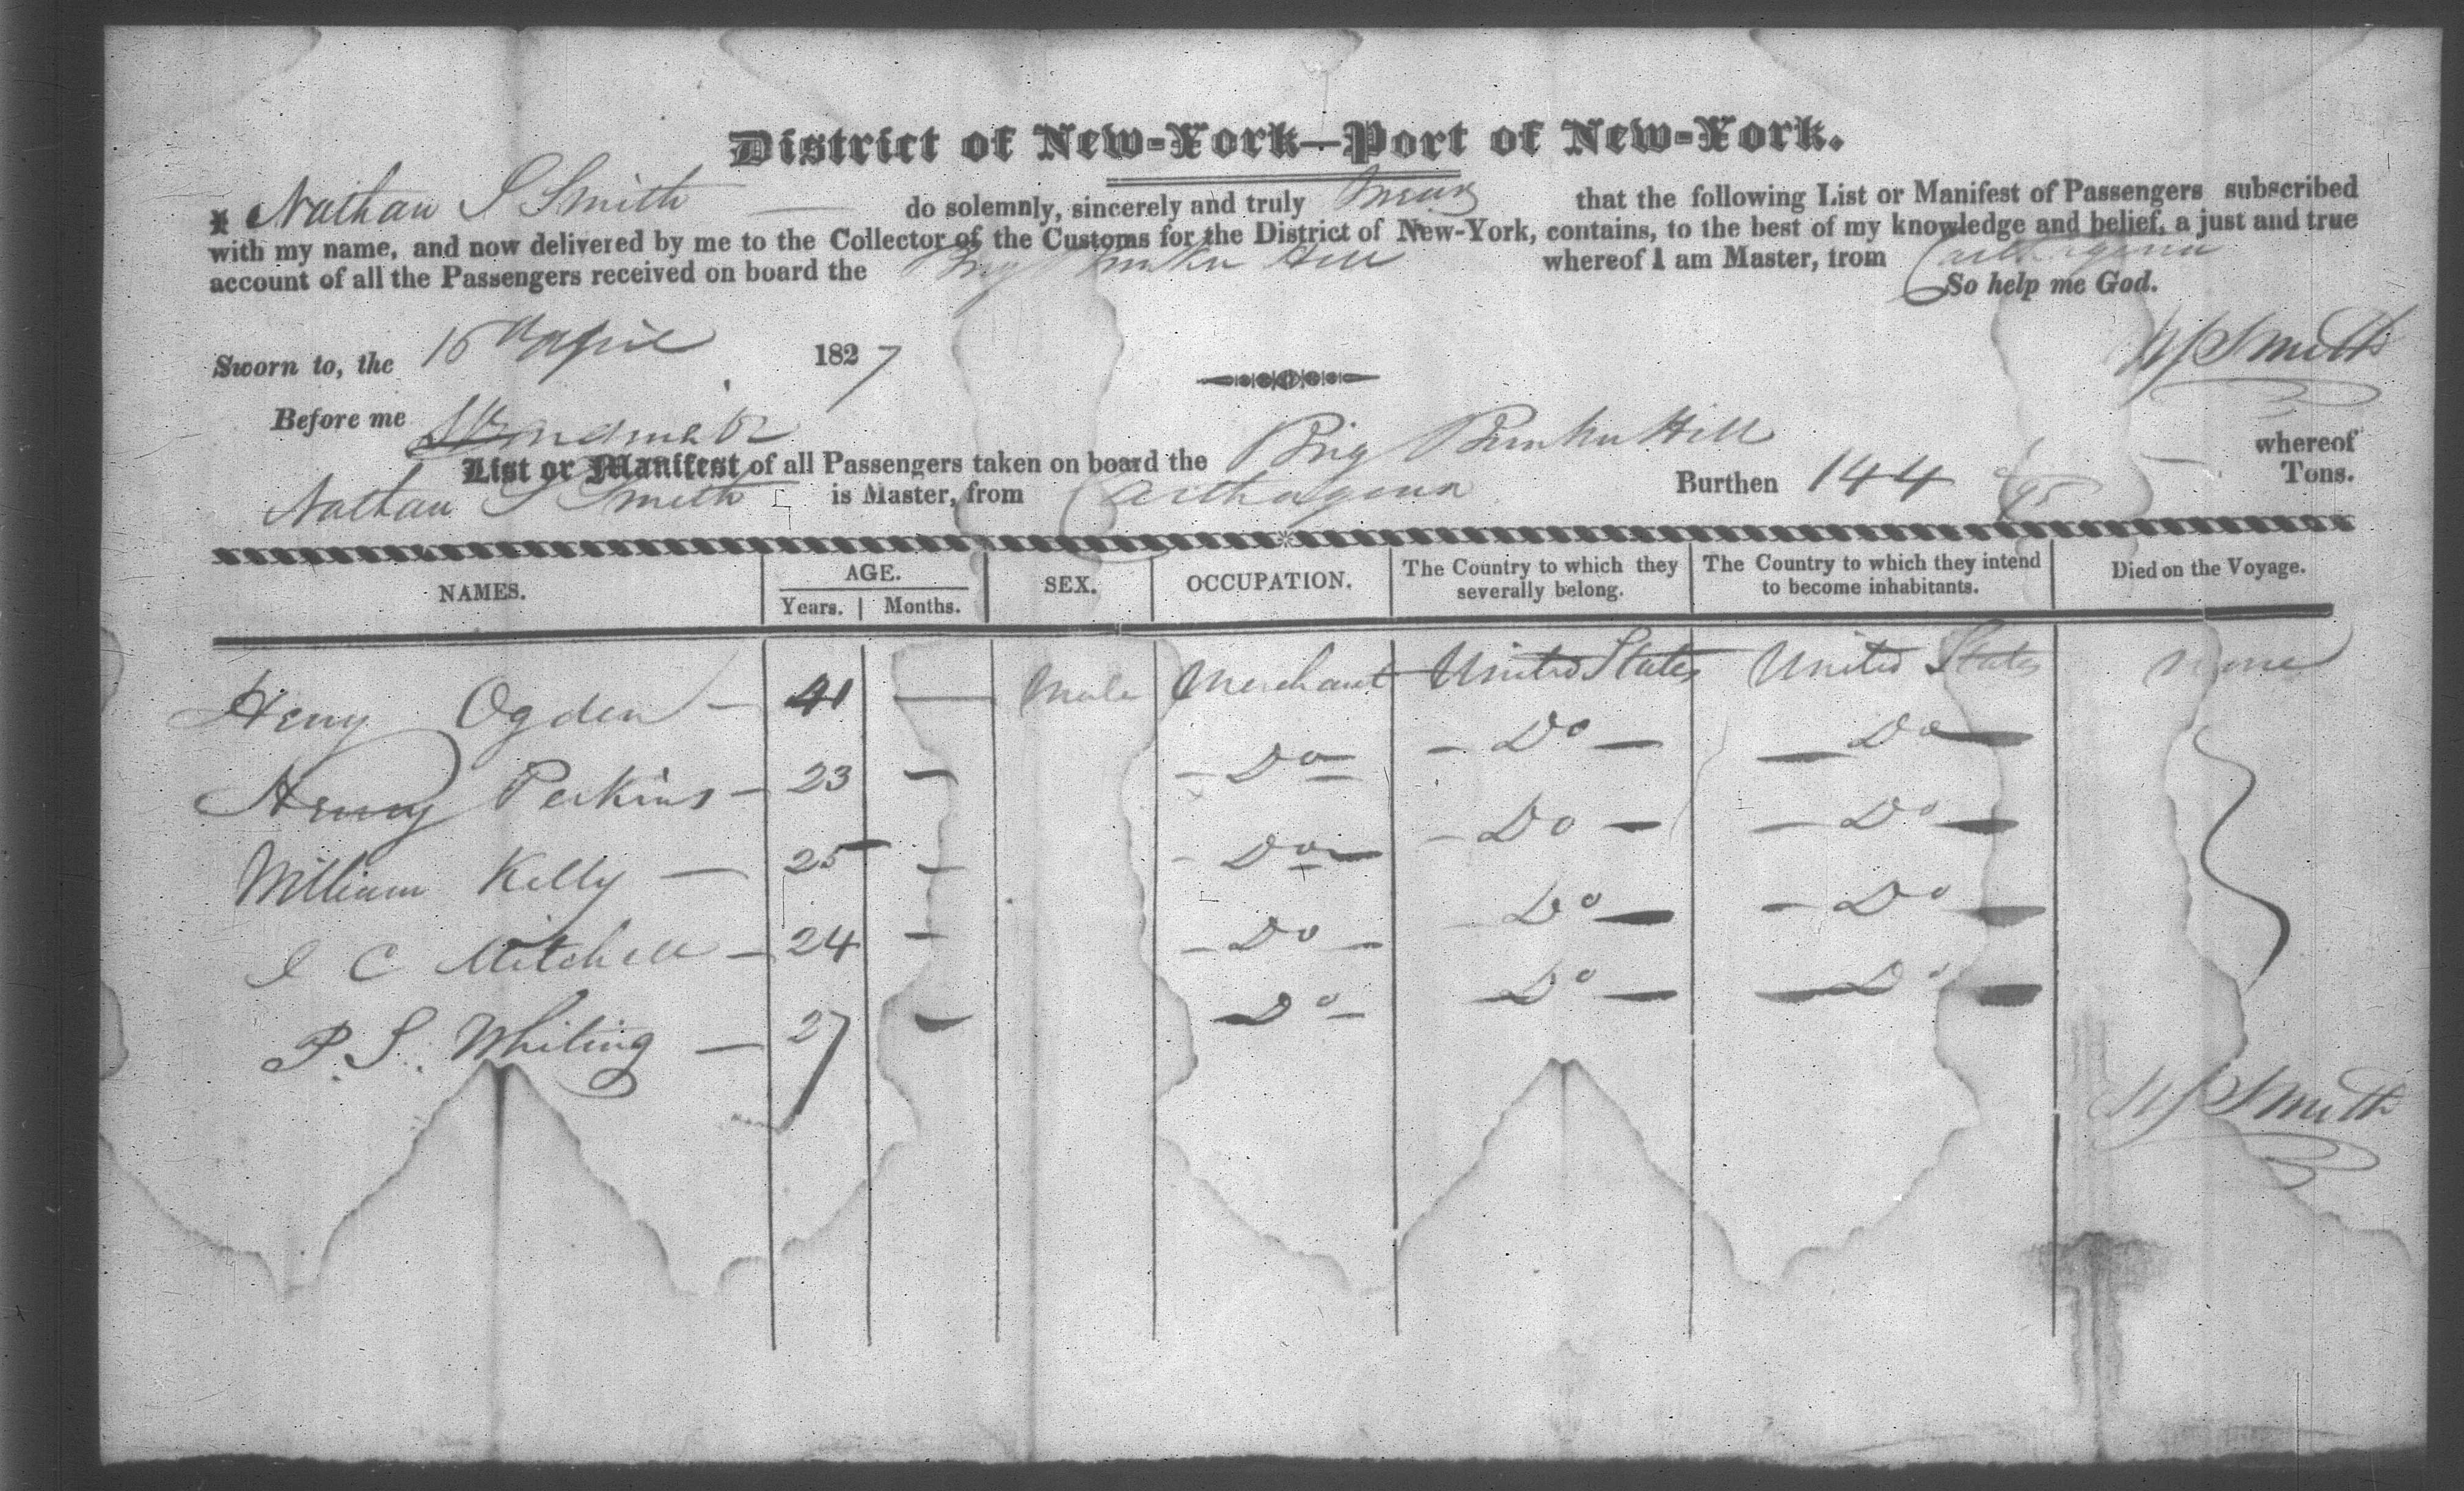 District of New-York—Port of New-York.
I Nathan S Smith — do solemnly, sincerely and truly swear that the following List or Manifest of Passengers subscribed
with my name, and now delivered by me to the Collector of the Customs for the District of New-York, contains, to the best of my knowledge and belief, a just and true
account of all the Passengers received on board the Brig Bunker Hill whereof I am Master, from Carthagena
So help me God.
Sworn to, the 16 April 1827
N S Smith
Before me
List or Manifest of all Passengers taken on board the Brig Bunker Hill whereof
Nathan S Smith is Master, from Carthagena Burthen 144 Tons.
NAMES. AGE. SEX. OCCUPATION. The Country to which they severally belong. The Country to which they intend to become inhabitants. Died on the Voyage.
Years. Months.
Henry Ogden — 41 — Male Merchant United States United States None
Henry Perkins — 23 — Do — Do — Do —
William Kelly — 25 — Do — Do — Do —
I C Mitchell — 24 — Do — Do — Do —
P. S. Whiting — 27 — Do — Do — Do —
N S Smith